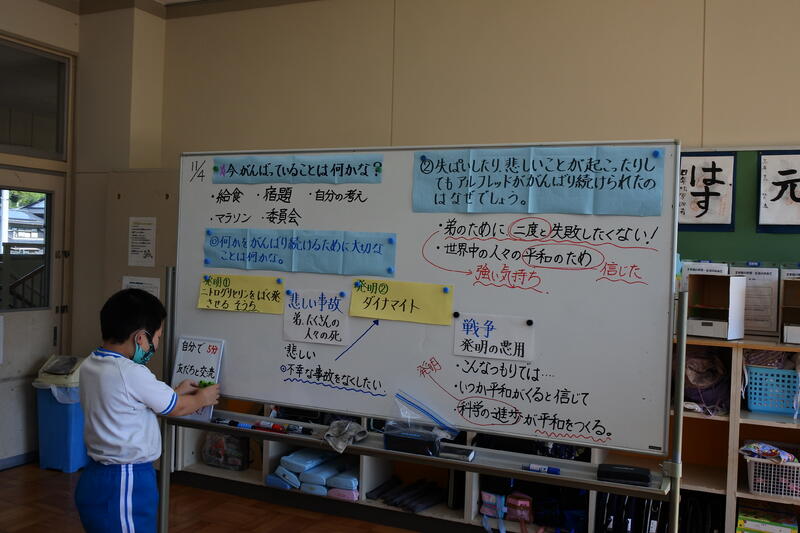 11/4
今がんばっていることは何かな?
・給食 ・宿題 ・自分の考え
・マラソン ・委員会
◎何かをがんばり続けるために大切な
ことは何かな。
発明①
ニトログリセリンをばく発
させるそうち
悲しい事故
弟、たくさんの
人々の死
発明②
ダイナマイト
悲しい
不幸な事故をなくしたい
自分で 5分
友だちと交流
②失ぱいしたり、悲しいことが起こったりし
てもアルフレッドががんばり続けられたの
はなぜでしょう。
・弟のために二度と失敗したくない!
・世界中の人々の平和のため
強い気持ち
信じた
戦争
発明の悪用
発明
・こんなつもりでは…
・いつか平和がくると信じて
・科学の進歩が平和をつくる。
はす
元